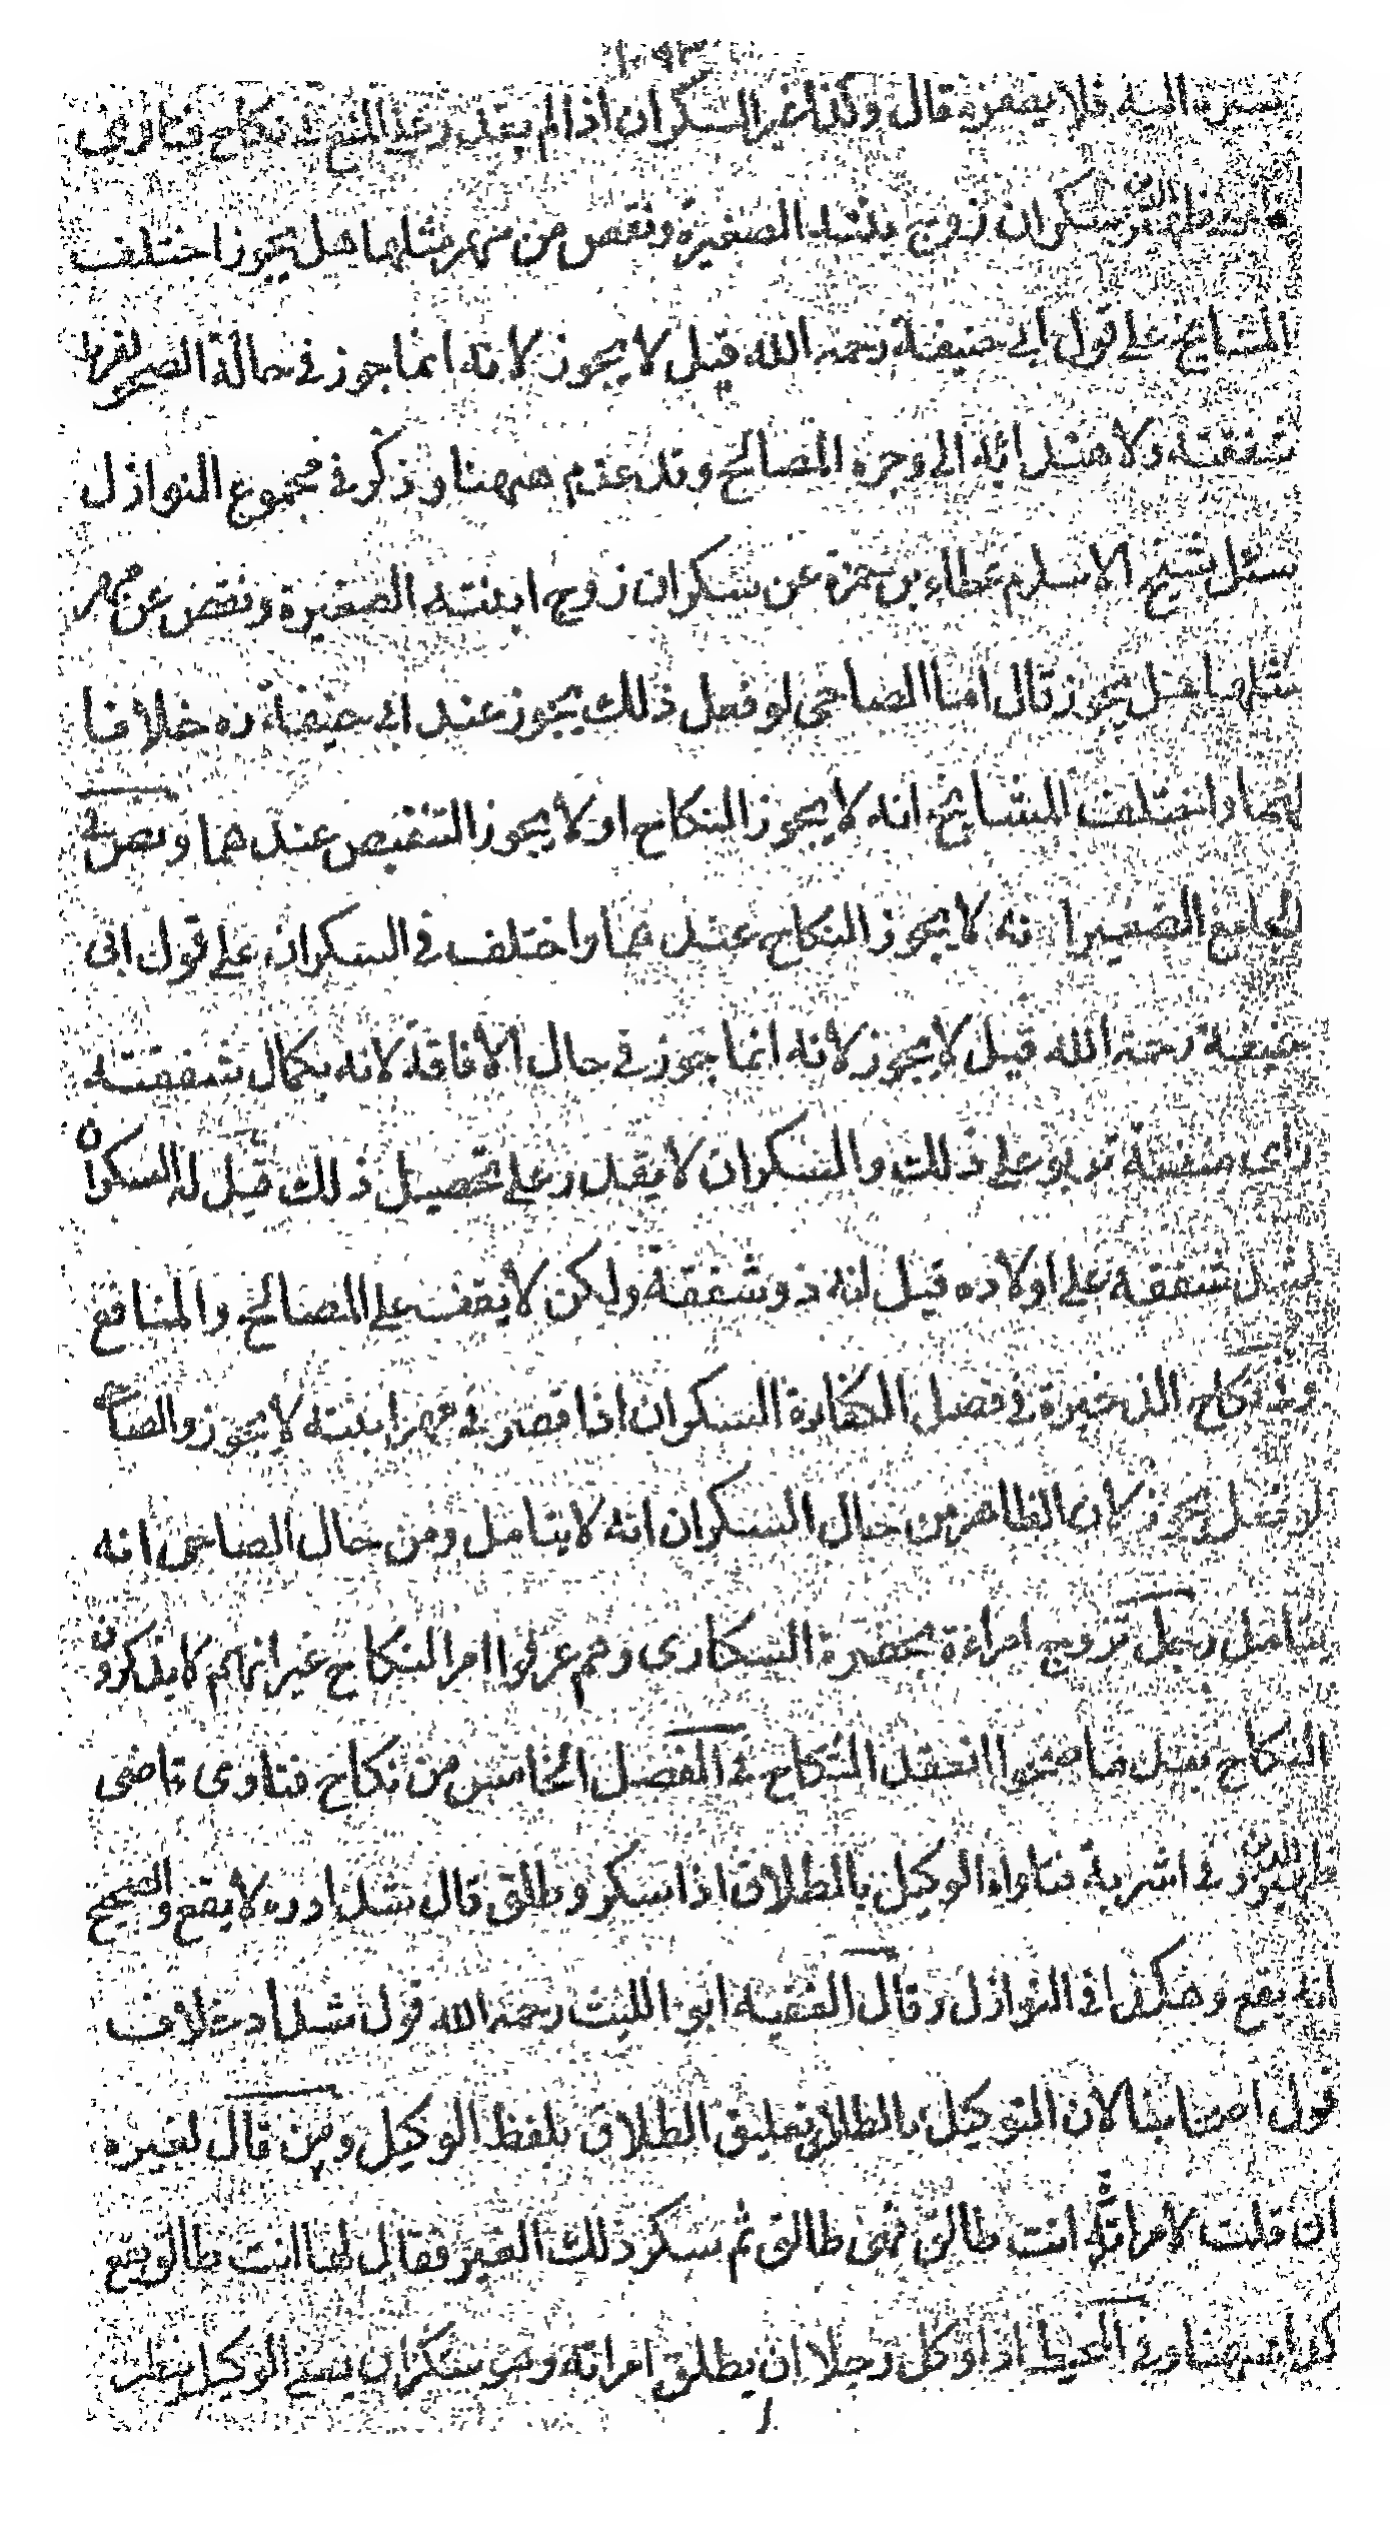 ١٠٩٣
فلا يصح قال وكذلك غير السكران اذا لم يقدر نكاح فتاوى
سكران زوج بنته الصغيرة ونقص من مهر مثلها هل يجوز اختلف
المشايخ على قول ابى حنيفة رحمه الله قيل لا يجوز لانه انما جوز فى حالة الصحو لفرط
شفقته ولاهتدائه الى وجوه المصالح وقد عدم ههنا وذكر فى مجموع النوازل
سئل شيخ الاسلام عطاء بن حمزة عن سكران زوج ابنته الصغيرة ونقص عن مهر
مثلها هل يجوز قال اما الصاحى لو فعل ذلك يجوز عند ابى حنيفة ره خلافا
لهما واختلف المشايخ انه لا يجوز النكاح او لا يجوز التنقيص عندهما ونص فى
الجامع الصغير انه لا يجوز النكاح عندهما واختلف فى السكران على قول ابى
حنيفة رحمه الله قيل لا يجوز لانه انما جوز فى حال الافاقة لانه بكمال شفقته
راى منفعة تربو على ذلك والسكران لا يقدر على تحصيل ذلك قيل له السكران
شفقة على اولاده قيل انه ذو شفقة ولكن لا يقف على المصالح والمنافع
وفى نكاح الذخيرة فى فصل الكفارة السكران اذا قصر فى مهر ابنته لا يجوز والصاحى
لو فعل يجوز لان الظاهر من حال السكران انه لا يتامل ومن حال الصاحى انه
يتامل رجل تزوج امراءة بحضرة السكارى وهم عرفوا امر النكاح غير انهم لا يذكرون
النكاح بعد ما صحوا انعقد النكاح فى الفصل الخامس من نكاح فتاوى قاضى
ظهير الدين وفى اشربة فتاواه الوكيل بالطلاق اذا سكر وطلق قال شداد ره لا يقع والصحيح
انه يقع وهكذا فى النوازل وقال الفقيه ابو الليث رحمه الله قول شداد خلاف
قول اصحابنا لان التوكيل بالطلاق تعليق الطلاق بلفظ الوكيل ومن قال لغيره
ان قلت لامراتى انت طالق فهى طالق ثم سكر ذلك الغير فقال لها انت طالق يقع
كذا ههنا وفى المحيط اذا وكل رجلا ان يطلق امراته وهو سكران الوكيل